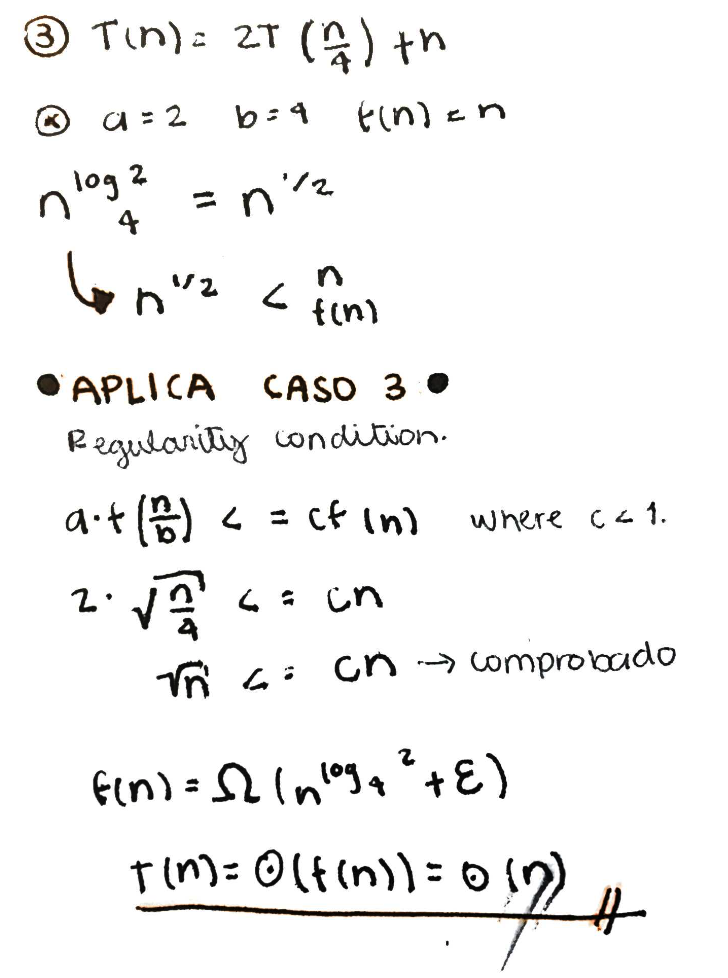 ③ T(n) = 2T (n/4) + n
ⓧ a = 2 b = 4 f(n) = n
n^log_4 2 = n^1/2
↳ n^1/2 < n f(n)
• APLICA CASO 3 •
Regularity condition.
a·f(n/b) <= cf(n) where c < 1.
2·√(n/4) <= cn
√n <= cn → comprobado
f(n) = Ω(n^log_4 2 + ε)
T(n) = Θ(f(n)) = Θ(n)